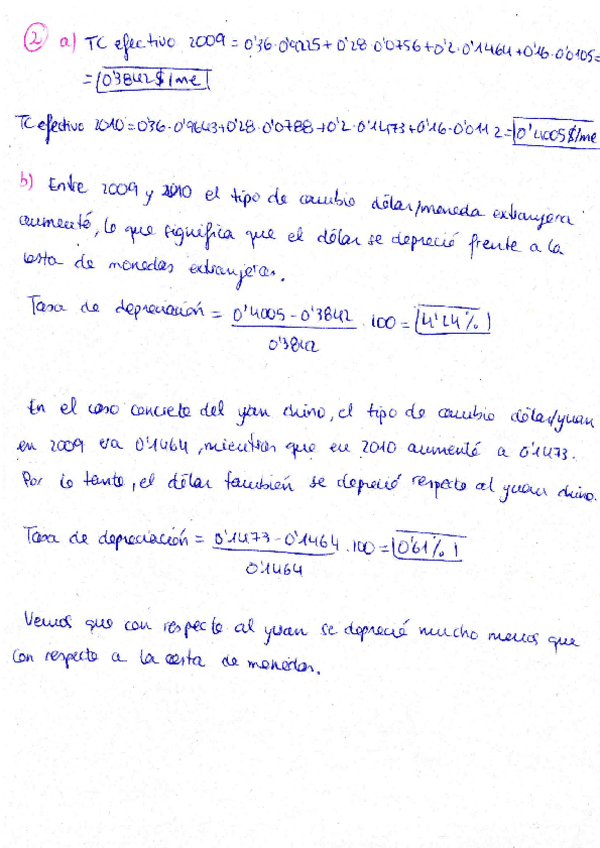 2 a) TC efectivo 2009 = 0'36·0'9225+0'28·0'0756+0'2·0'1464+0'16·0'0105=
= 0'3842$/me
TC efectivo 2010=0'36·0'9643+0'28·0'0788+0'2·0'1473+0'16·0'0112=0'4005$/me
b) Entre 2009 y 2010 el tipo de cambio dólar/moneda extranjera
aumentó, lo que significa que el dólar se depreció frente a la
cesta de monedas extranjeras.
Tasa de depreciación = 0'4005-0'3842 · 100 = 4'24%
0'3842
En el caso concreto del yuan chino, el tipo de cambio dólar/yuan
en 2009 era 0'1464, mientras que en 2010 aumentó a 0'1473.
Por lo tanto, el dólar también se depreció respecto al yuan chino.
Tasa de depreciación = 0'1473-0'1464 · 100 = 0'61%
0'1464
Vemos que con respecto al yuan se depreció mucho menos que
con respecto a la cesta de monedas.